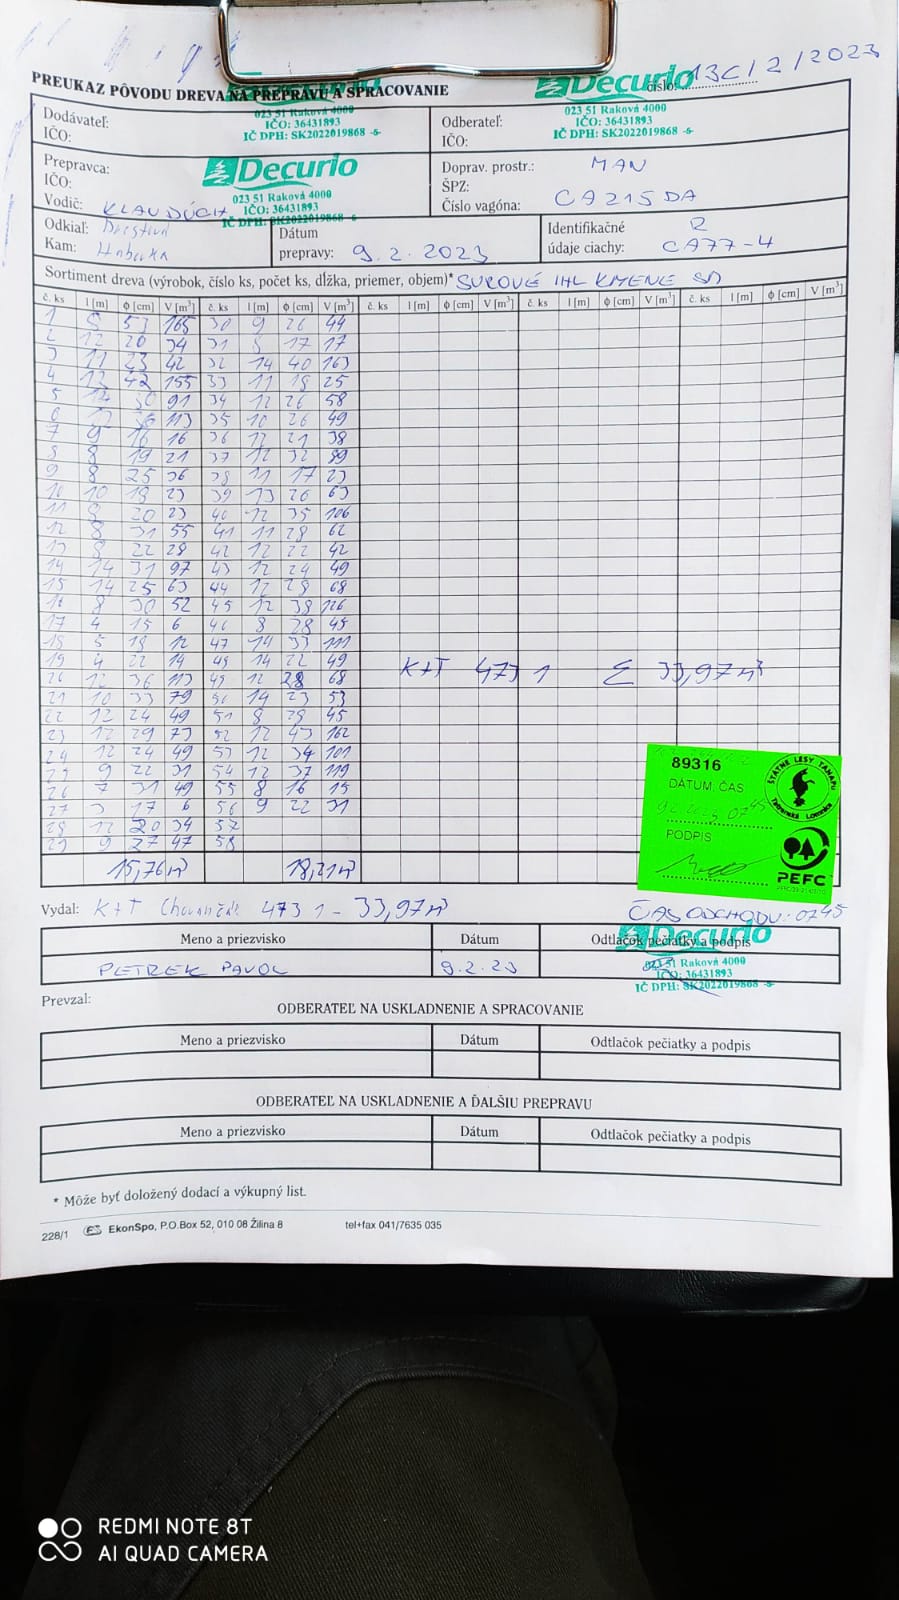 PREUKAZ PÔVODU DREVA NA PREPRAVU A SPRACOVANIE
Decurio
číslo: 13C/2/2023
Dodávateľ:
IČO:
023 51 Raková 4000
IČO: 36431893
IČ DPH: SK2022019868 -6-
Odberateľ:
IČO:
023 51 Raková 4000
IČO: 36431893
IČ DPH: SK2022019868 -6-
Prepravca:
IČO:
Vodič: KLAUDÚCH
Decurio
023 51 Raková 4000
IČO: 36431893
IČ DPH: SK2022019868 -6-
Doprav. prostr.: MAN
ŠPZ:
Číslo vagóna: CA215DA
Odkiaľ:
Kam:
Dátum
prepravy: 9.2.2023
Identifikačné
údaje ciachy: CA77-4
Sortiment dreva (výrobok, číslo ks, počet ks, dĺžka, priemer, objem)* SUROVÉ IHL KMENE SM
č. ks l [m] φ [cm] V [m³] č. ks l [m] φ [cm] V [m³] č. ks l [m] φ [cm] V [m³] č. ks l [m] φ [cm] V [m³] č. ks l [m] φ [cm] V [m³]
1 53 165 30 9 26 44
2 12 20 34 31 17 17
3 11 23 42 32 14 40 163
4 42 155 33 11 18 25
5 30 91 34 12 26 58
6 36 113 35 10 26 49
7 9 16 16 36 12 21 38
8 8 19 21 37 12 32 89
9 8 25 36 38 11 17 23
10 10 18 23 39 13 26 63
11 8 20 23 40 12 35 106
12 8 31 55 41 11 28 62
13 8 22 28 42 12 22 42
14 14 31 97 43 12 24 49
15 14 25 63 44 12 28 68
16 8 30 52 45 12 38 126
17 4 15 6 46 8 28 45
18 5 18 12 47 14 33 111
19 4 22 14 48 14 22 49
20 12 36 113 49 12 28 68
21 10 33 79 50 14 23 53
22 12 24 49 51 8 28 45
23 12 29 73 52 12 43 162
24 12 24 49 53 12 34 101
25 9 22 31 54 12 37 119
26 7 31 49 55 8 16 15
27 3 17 6 56 9 22 31
28 12 20 34 57
29 9 27 47 58
K+T 473 1 Σ 33,97m³
15,76m³ 18,21m³
89316
DÁTUM, ČAS
PODPIS
ŠTÁTNE LESY TANAPU
Tatranská Lomnica
PEFC
Vydal: K+T 473 1 - 33,97m³
ČAS ODCHODU: 0745
Meno a priezvisko Dátum Odtlačok pečiatky a podpis
Decurio
PETREK PAVOL 9.2.23
023 51 Raková 4000
IČO: 36431893
IČ DPH: SK2022019868 -6-
Prevzal:
ODBERATEĽ NA USKLADNENIE A SPRACOVANIE
Meno a priezvisko Dátum Odtlačok pečiatky a podpis
ODBERATEĽ NA USKLADNENIE A ĎALŠIU PREPRAVU
Meno a priezvisko Dátum Odtlačok pečiatky a podpis
* Môže byť doložený dodací a výkupný list.
228/1 EkonSpo, P.O.Box 52, 010 08 Žilina 8 tel+fax 041/7635 035
REDMI NOTE 8T
AI QUAD CAMERA